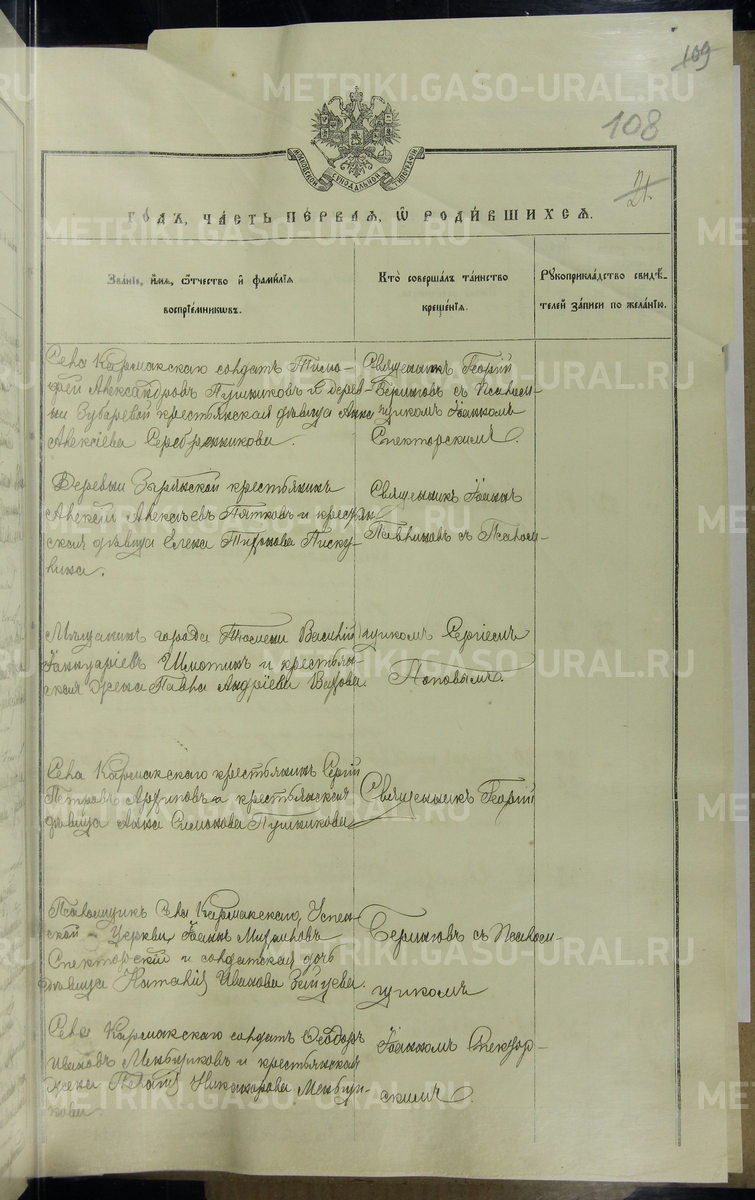 109
108
21.
МОСКОВСКОЙ СУНОДАЛЬНОЙ ТИПОГРАФІИ
ГОДЪ, ЧАСТЬ ПЕРВАЯ, Ѿ РОДИВШИХСЯ.
Званіе, имя, ѿчество и фамилія
воспріемниковъ.
Кто совершалъ таинство
крещенія.
Рукоприкладство свидѣ-
телей записи по желанію.
Села Кармакскаго солдатъ Тимо-
фей Александровъ Пушниковъ и дерев-
ни Зубаревой крестьянская дѣвица Анна
Алексіева Серебрянникова.
Священникъ Георгій
Беринговъ съ Псалом-
щикомъ Іоанномъ
Спекторскимъ.
Деревни Зырянской крестьянинъ
Алексій Алексѣевъ Пятковъ и крестьян-
ская дѣвица Елена Писку-
нина.
Священникъ Іоаннъ
съ Псалом-
Мѣщанинъ города Тюмени Василій
Іаннуаріевъ Шмотинъ и крестьян-
ская жена Павла Андріева
щикомъ Сергіемъ
Поповымъ.
Села Кармакскаго крестьянинъ Сергій
Петровъ Арфиповъ и крестьянская
дѣвица Анна Симонова Пушникова
Священникъ Георгій
Псаломщикъ Села Кармакскаго, Успен-
ской Церкви, Іоаннъ
Спекторскій и солдатская дочь
дѣвица Наталія Иванова Зайцева.
Беринговъ съ Псалом-
щикомъ
Села Кармакскаго солдатъ Ѳеодоръ
Ивановъ Меньщиковъ и крестьянская
жена Пелагія Никанорова Меньщи-
кова.
Іоанномъ Спектор-
скимъ.
METRIKI.GASO-URAL.RU